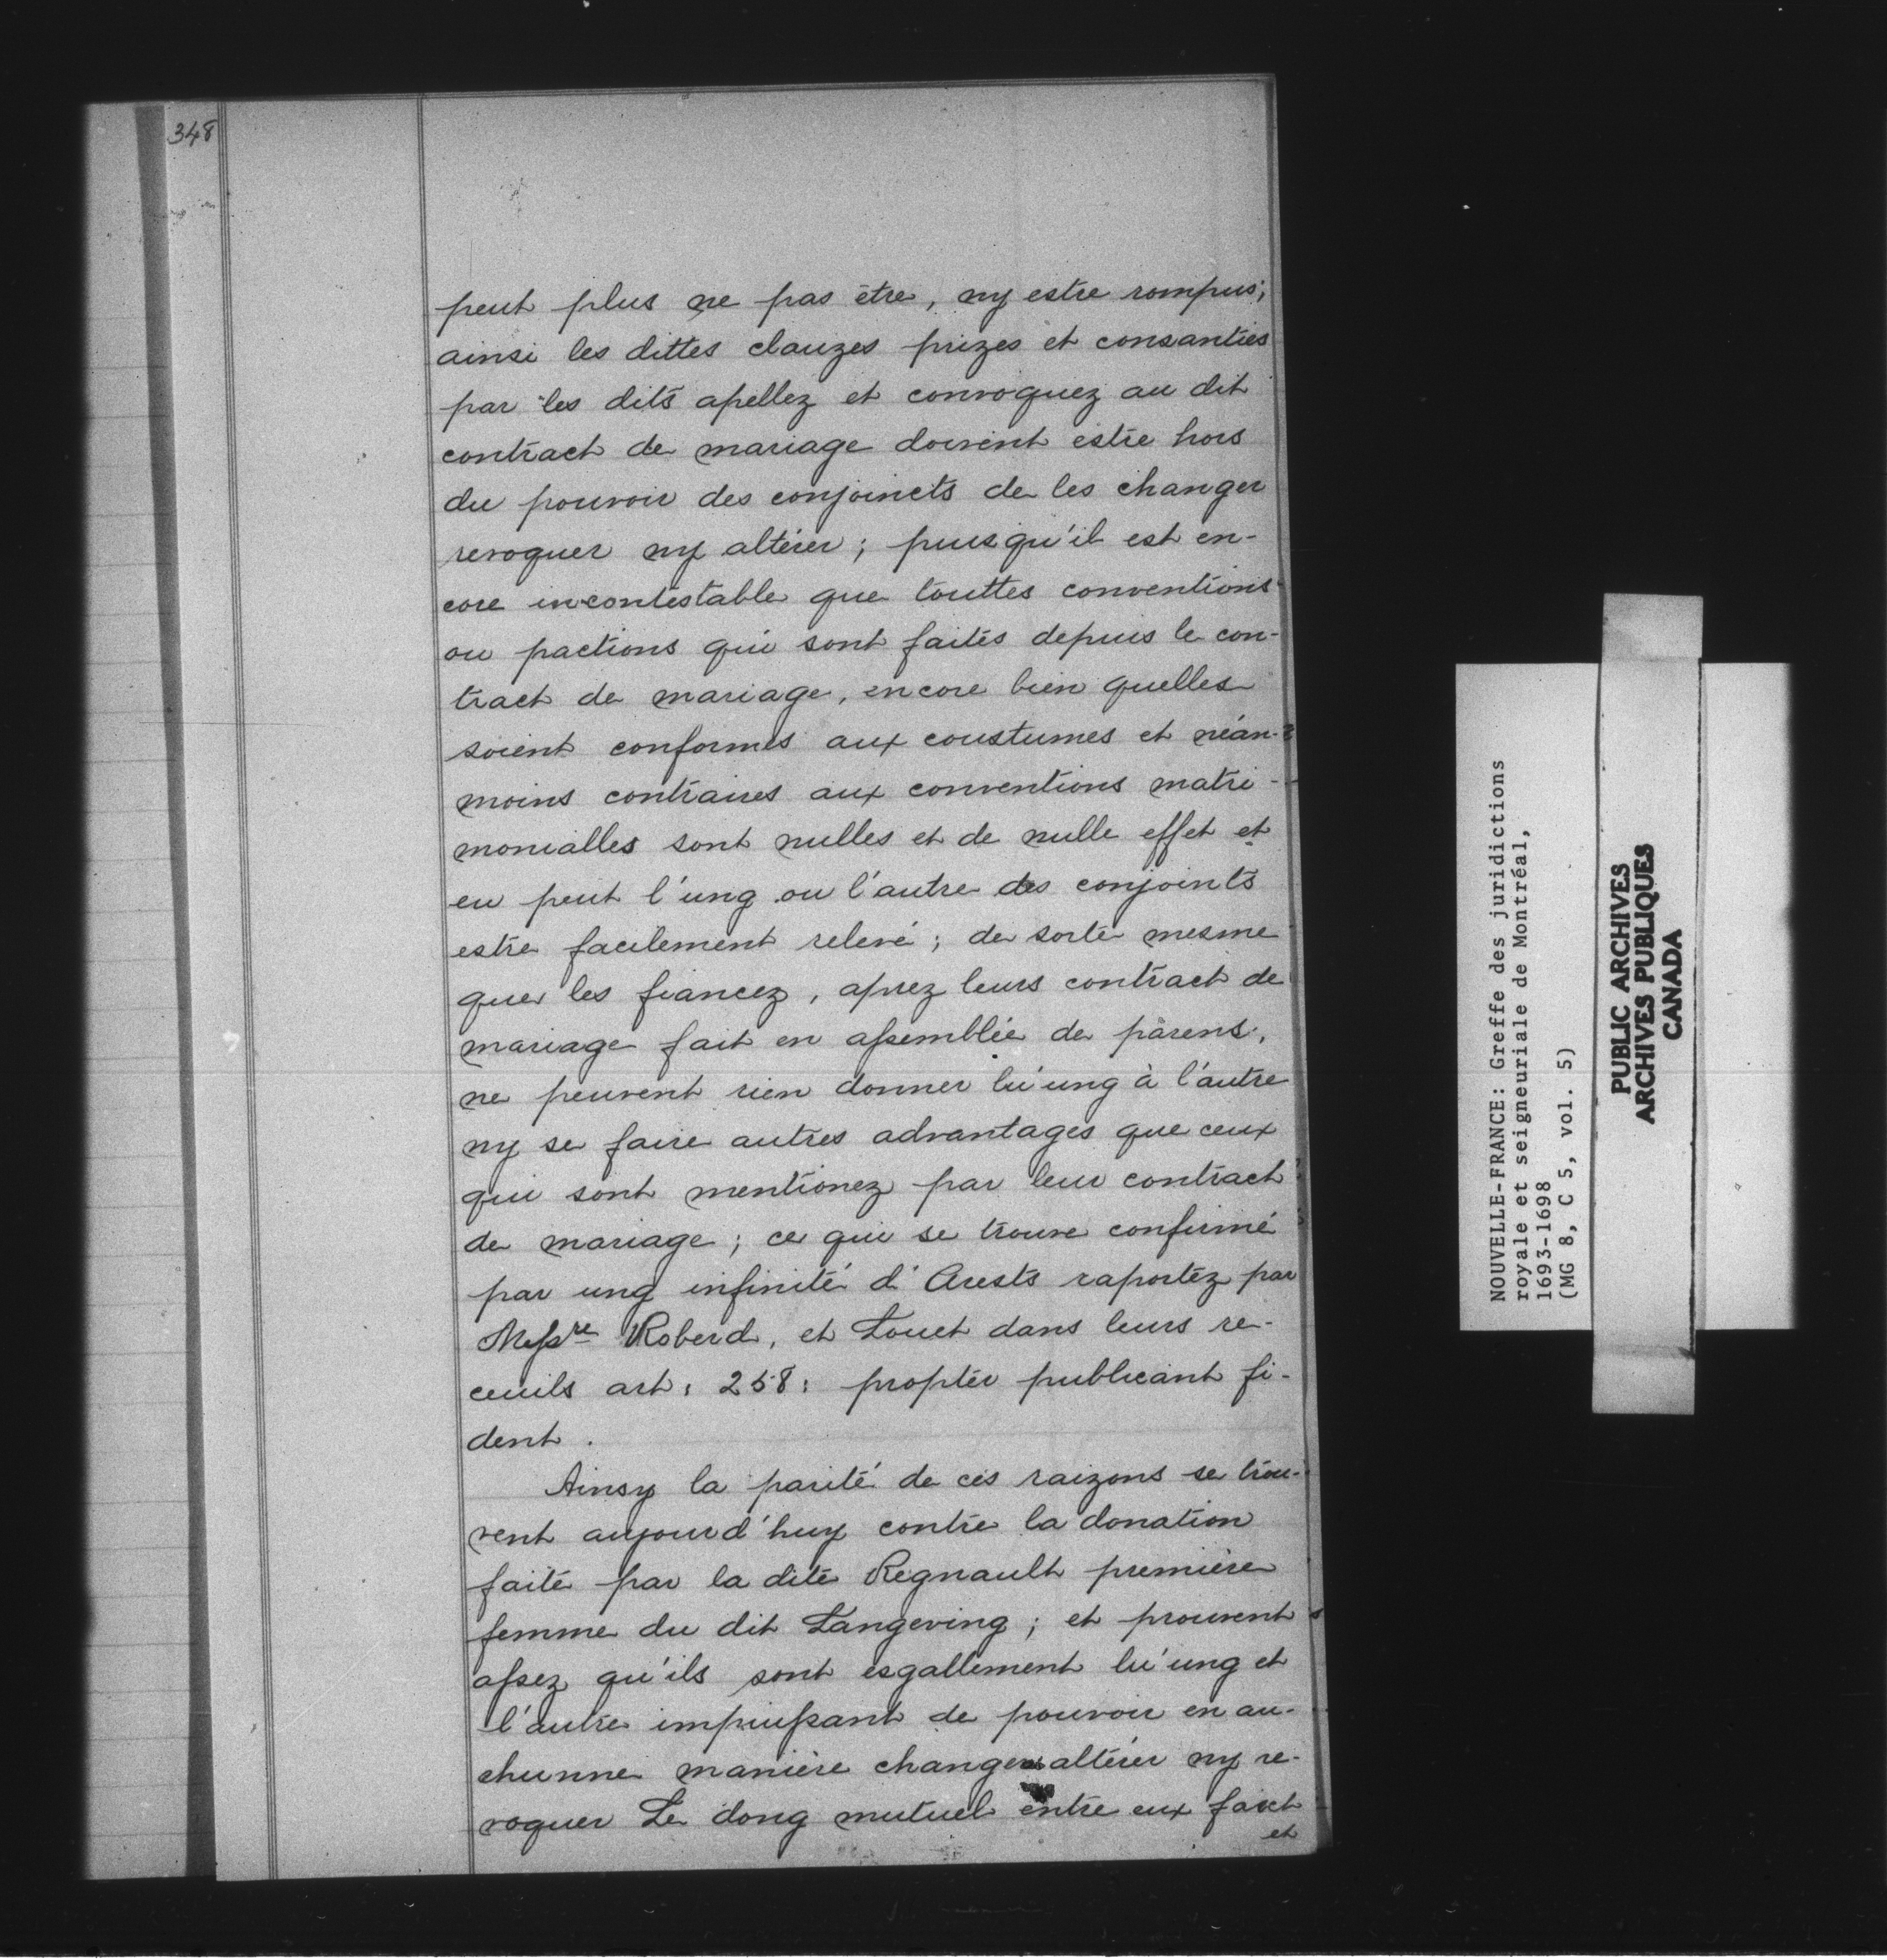 348
peut plus ne pas être, ny estre rompus;
ainsi les dittes clauzes prizes et consanties
par les dits apellez et convoquez au dit
contract de mariage doivent estre hors
du pouvoir des conjoincts de les changer
revoquer ny altérer; puisqu'il est en-
core incontestable que touttes conventions
ou pactions qui sont faites depuis le con-
tract de mariage, encore bien quelles
soient conformes aux coustumes et néan-
moins contraires aux conventions matri-
monialles sont nulles et de nulle effet et
en peut l'ung ou l'autre des conjoints
estre facilement relevé; de sorte mesme
que les fiancez, aprez leurs contract de
mariage fait en assemblée de parens,
ne peuvent rien donner lu'ung à l'autre
ny se faire autres advantages que ceux
qui sont mentionez par leur contract
de mariage; ce qui se trouve confirmé
par ung infinité d'Arests raportez par
Messre Roberd, et Louet dans leurs re-
ceuils art: 258: propter publicant fi-
dent.
Ainsy la parité de ces raizons se trou-
vent aujourd'huy contre la donation
faite par la dite Regnault première
femme du dit Langeving; et prouvent
assez qu'ils sont esgallement lu'ung et
l'autre impuissant de pouvoir en au-
chunne manière changer altérer ny re-
voquer Le dong mutuel entre eux faict
et
NOUVELLE-FRANCE: Greffe des juridictions
royale et seigneuriale de Montréal,
1693-1698
(MG 8, C 5, vol. 5)
PUBLIC ARCHIVES
ARCHIVES PUBLIQUES
CANADA